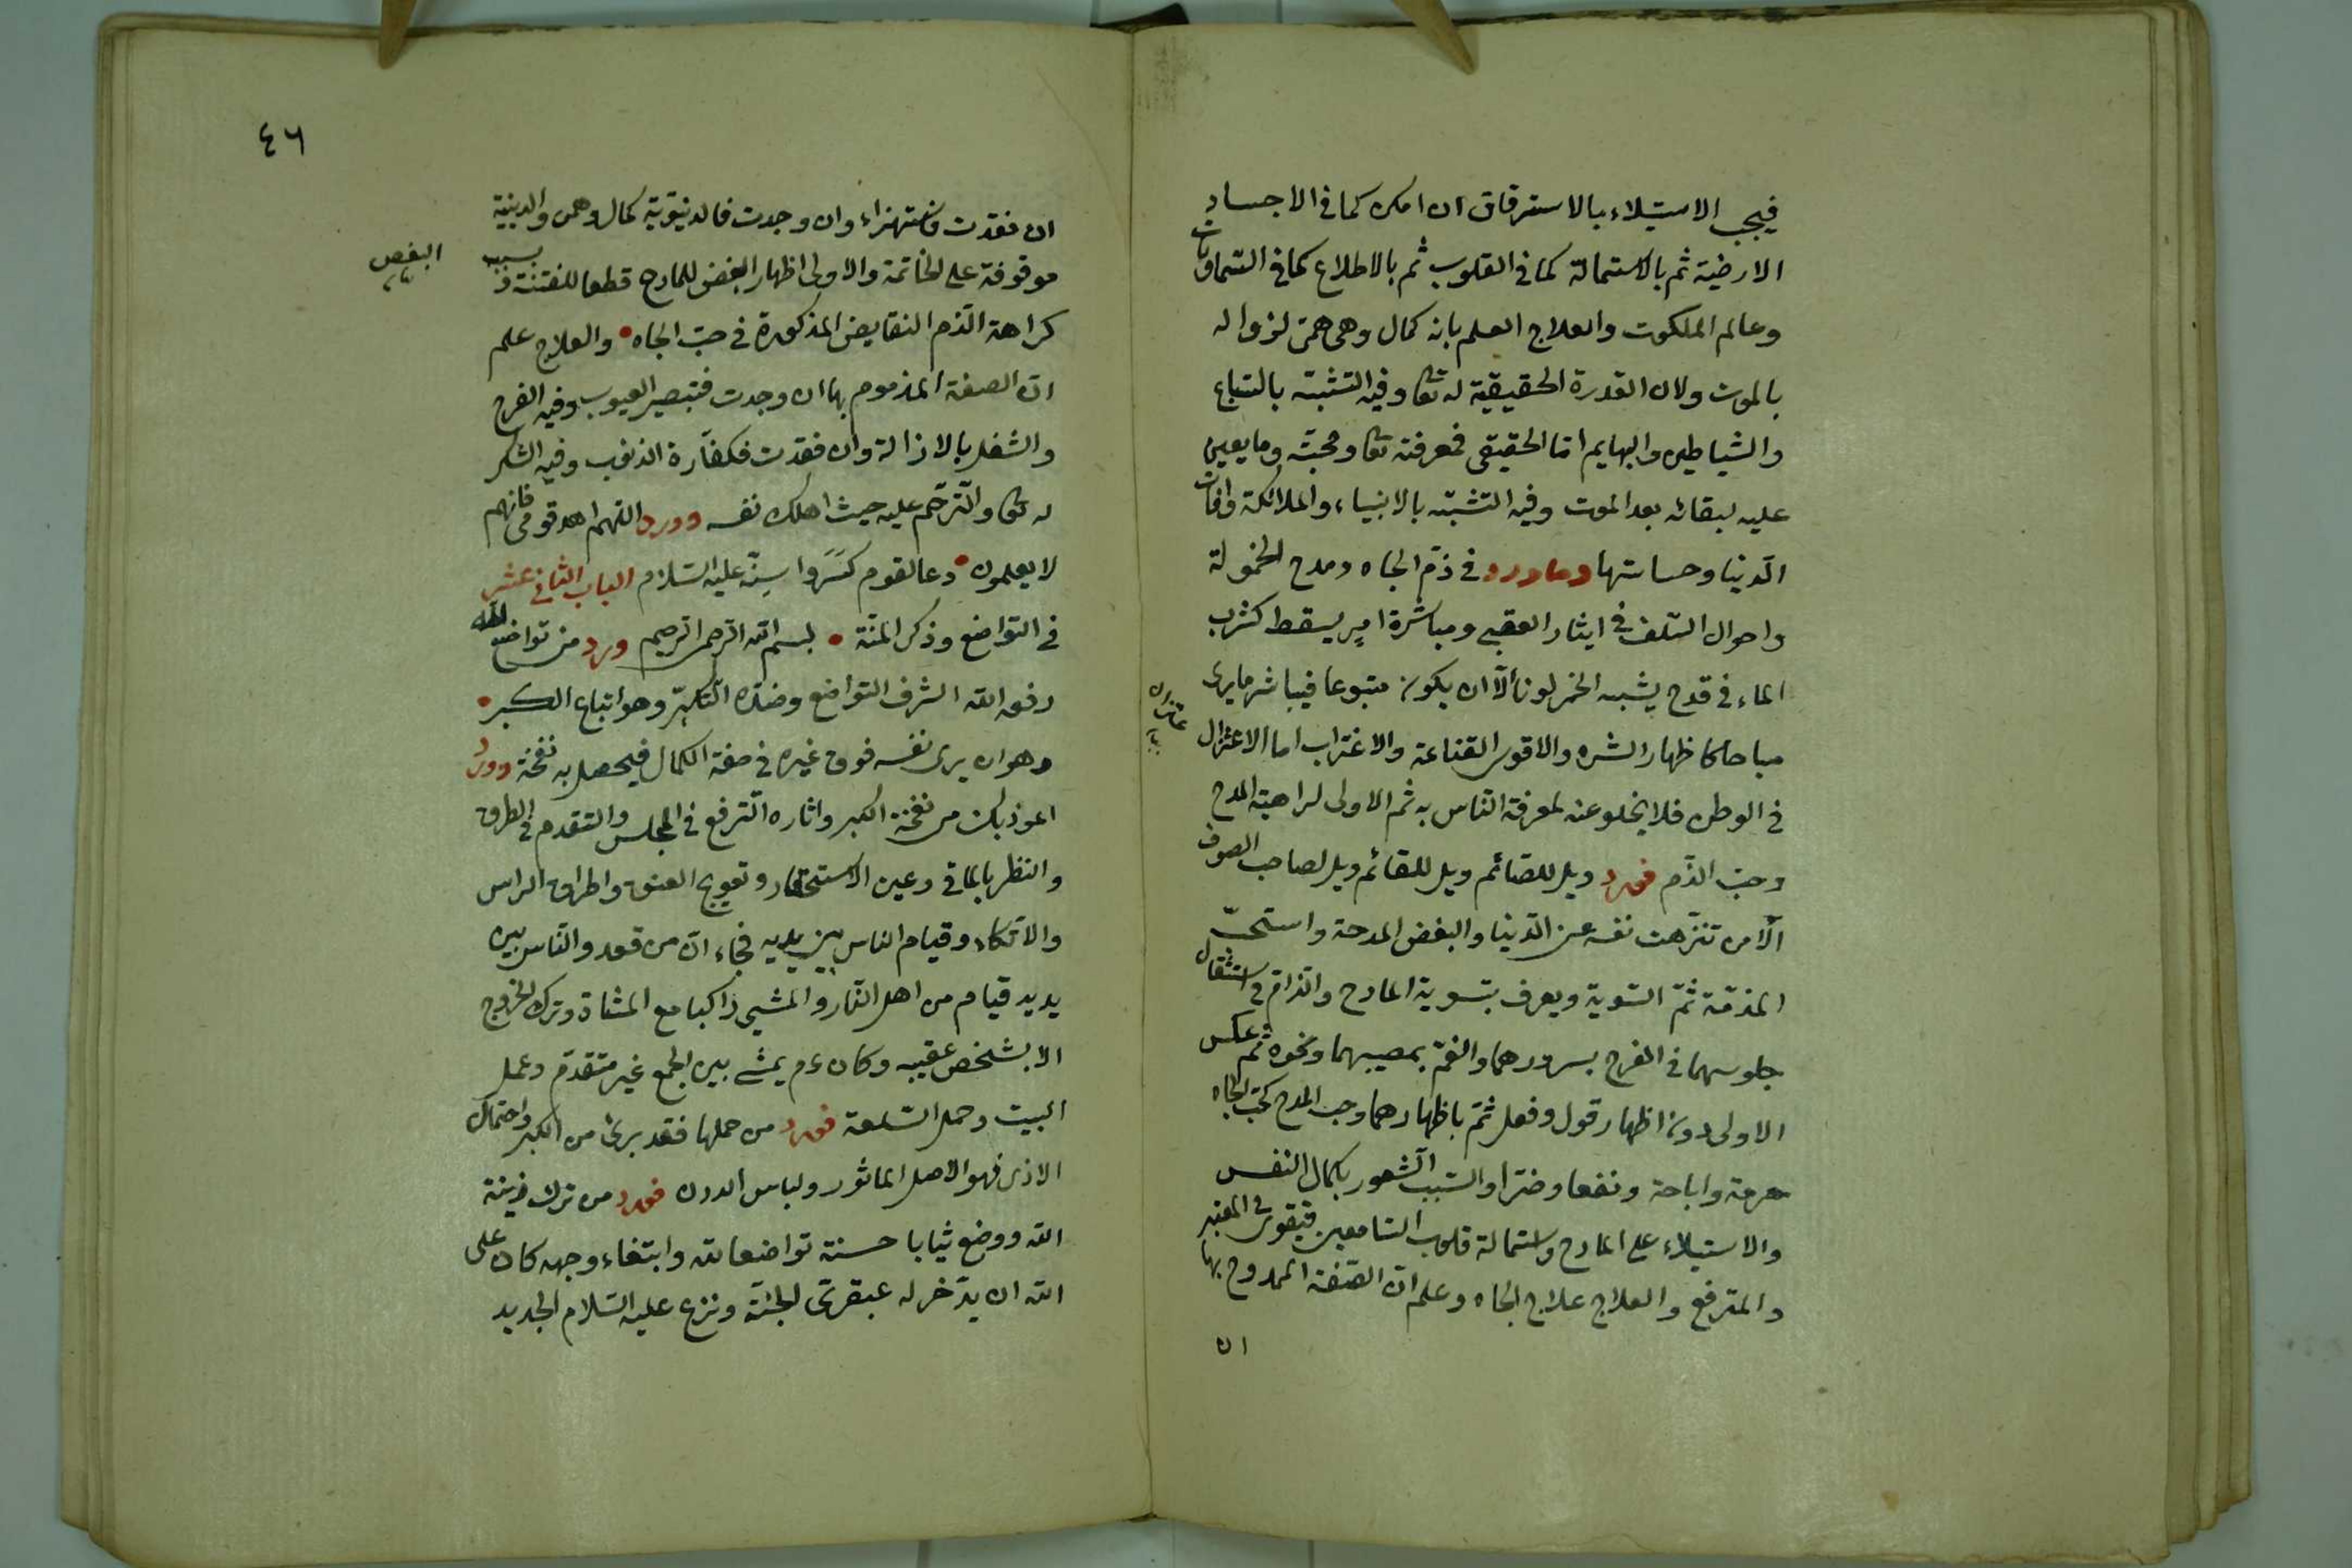 فيجب الاستيلاء بالاسترقاق ان امكن كما في الاجساد
الارضية ثم بالاستمالة كما في القلوب ثم بالاطلاع كما في السماوات
وعالم الملكوت والعلاج العلم بانه كمال وهمي لزواله
بالموت ولان القدرة الحقيقية له تعا وفيه التشبه بالسباع
والشياطين والبهايم اما الحقيقي فمعرفته تعا ومحبته وما يعين
عليه لبقائه بعد الموت وفيه التشبه بالانبياء والملائكة وافات
الدنيا وخساستها وما ورد في ذم الجاه ومدح الخمولة
واحوال السلف في ايثار العقبى ومباشرة امر يسقط كشرب
الماء في قدح يشبه الخمر لونا الا ان يكون متبوعا فيباشر ما يرى
مباحا كاظهار الشره والاقوى القناعة والاغتراب اما الاعتزال
في الوطن فلا يخلو عنه لمعرفة الناس به ثم الاولى كراهية المدح
وحب الذم فورد ويل للصائم ويل للقائم ويل لصاحب الصوف
الا من تنزهت نفسه عن الدنيا والبغض المدحة واستحب
المذمة ثم التسوية ويعرف بتسوية المادح والذام في استثقال
جلوسهما في الفرح بسرورهما والغم بمصيبهما ونحوه ثم عكس
الاولى دون اظهار قول وفعل ثم باظهارهما وحب المدح كحب الجاه
حرمة واباحة ونفعا وضرا والسبب الشعور بكمال النفس
والاستيلاء على المادح واستمالة قلوب السامعين فيقوى في المعتبر
والمترفع والعلاج علاج الجاه وعلم ان الصفة الممدوح بها
ان
٤٦
ان فقدت فاستهزاء وان وجدت فالدنيوية كمال وهمي والدينية
موقوفة على الخاتمة والاولى اظهار البغض للمادح قطعا للفتنة وسبب
البغض
كراهة الذم النقايض المذكورة في حب الجاه • والعلاج علم
ان الصفة المذموم بها ان وجدت فتبصير العيوب وفيه الفرح
والشغل بالازالة وان فقدت فكفارة الذنوب وفيه الشكر
له تعا والترحم عليه حيث اهلك نفسه وورد اللهم اهد قومي فانهم
لا يعلمون • دعا لقوم كسروا سنه عليه السلام الباب الثاني عشر
في التواضع وذكر المنة • بسم الله الرحمن الرحيم ورد من تواضع لله
رفعه الله الشرف التواضع وضده التكبر وهو اتباع الكبر •
وهو ان يرى نفسه فوق غيره في صفة الكمال فيحصل به نفخة وورد
اعوذ بك من نفخة الكبر واثاره الترفع في المجلس والتقدم في الطرق
والنظر بالماقي وعين الاستحقار وتعويج العنق واطراق الراس
والاتكاء وقيام الناس بين يديه فجاء ان من قعد والناس بين
يديه قيام من اهل النار والمشي راكبا مع المشاة وترك الخروج
الا بشخص عقيبه وكان عم يمشي بين الجمع غير متقدم وعمل
البيت وحمل السلعة فورد من حملها فقد برئ من الكبر واحتمال
الاذى فهو الاصل الماثور ولباس الدون فورد من ترك زينة
الله ووضع ثيابا حسنة تواضعا لله وابتغاء وجهه كان على
الله ان يدخر له عبقري الجنة ونزع عليه السلام الجديد